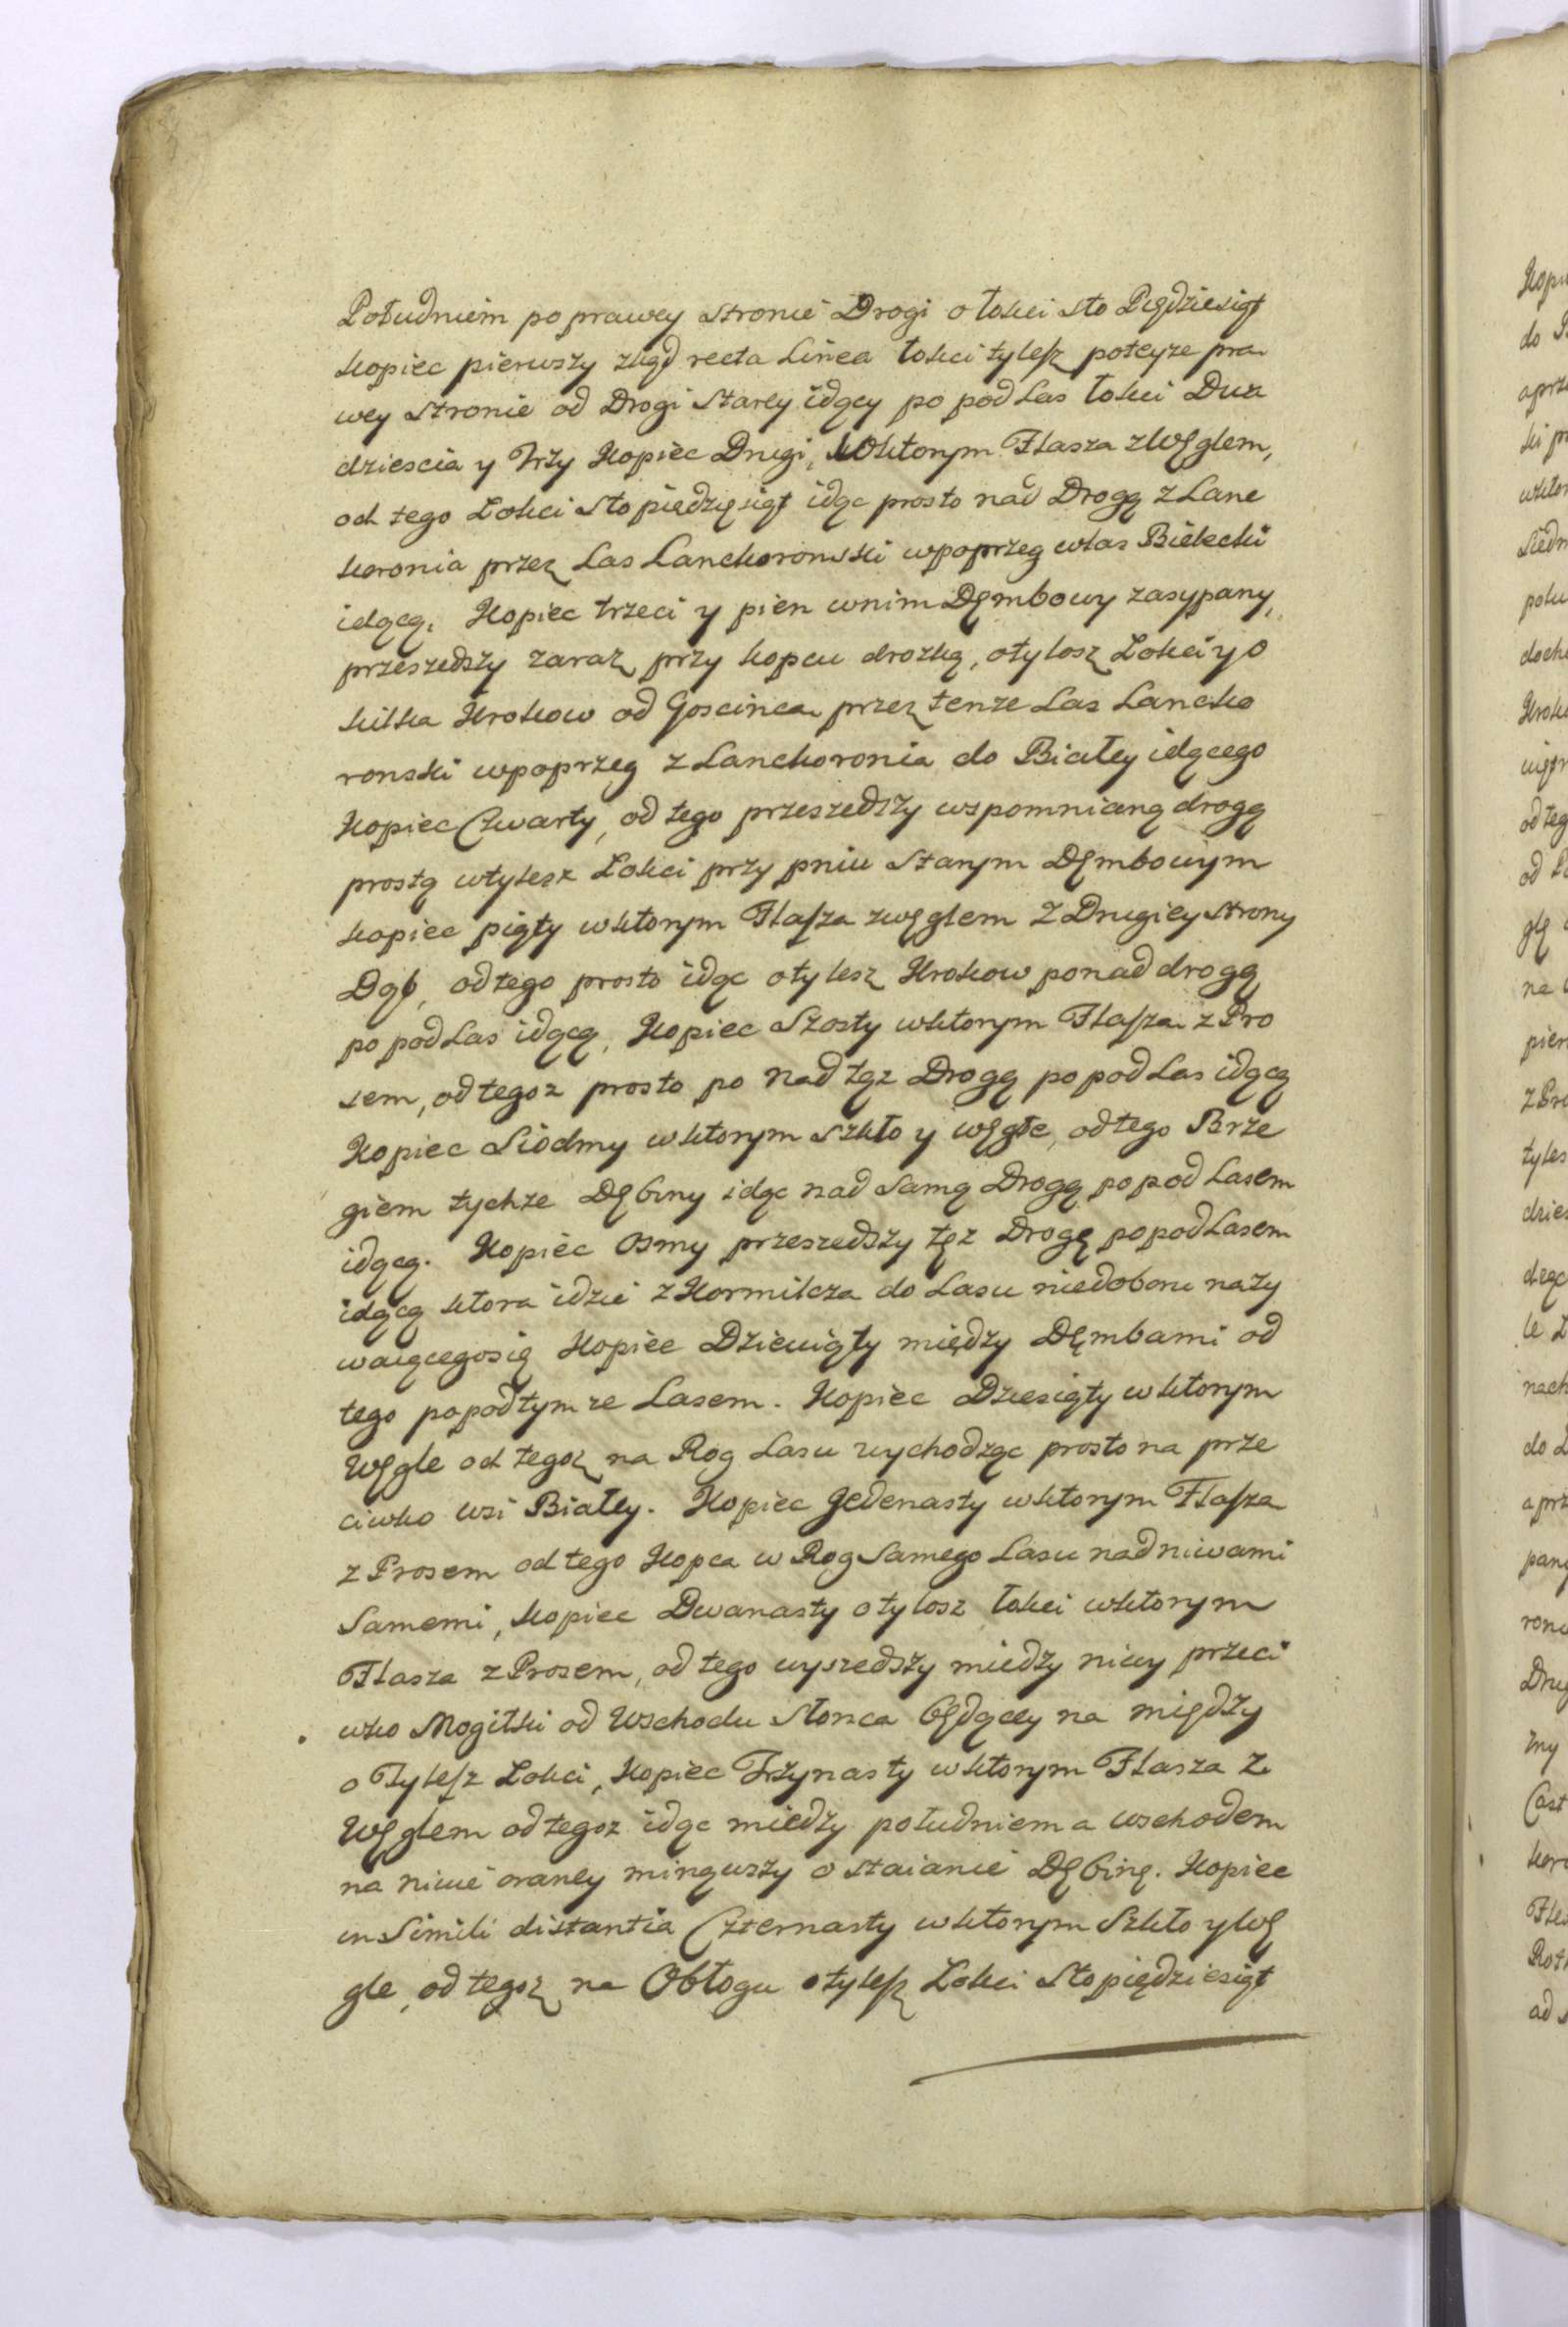 Południem po prawey stronie Drogi o łokci sto Pięдziesiąt
kopiec pierwszy ztąd recta Linea łokci tylesz poteyze pra
wey stronie od Drogi Starey idącey po pod Las łokci Dwa
dziescia y Trzy Kopiec Drugi, wktorym Flasza zWęglem,
od tego Łokci Sto piędzięsiąt idąc prosto nad Drogą z Lanc
koronia przez Las Lanckoronski wpoprzeg wlas Bielecki
idącą, Kopiec trzeci y pien wnim Dęmbowy zasypany,
przeszedszy zaraz przy kopcu drozkę, otylosz Łokci y o
kilka Krokow od Goscinca przez tenze Las Lancko
ronski wpoprzeg z Lanckoronia do Białey idącego
Kopiec Czwarty, od tego przeszedszy wspomnianą drogą
prostą wtylesz Łokci przy pniu Starym Dęmbowym
kopiec piąty wktorym Flasza zwęglem z Drugiey strony
Dąb, od tego prosto idąc otylesz Krokow ponad drogą
po pod Las idącą, Kopiec Szosty wktorym Flasza z Pro
sem, od tegoz prosto po nad tąz Drogą po pod Las idącą
Kopiec Siodmy wktorym szkło y węgłe, od tego Brze
giem tychze Dębiny idąc nad samą Drogą po pod Lasem
idącą. Kopiec osmy przeszedszy tęz Drogę popod Lasem
idącą ktora idzie z Kormilcza do Lasu niedoboru nazy
waiącegosię Kopiec Dziewiąty między Dęmbami od
tego popod tymze Lasem. Kopiec Dziesiąty wktorym
Węgle od tegoz na Rog Lasu wychodząc prosto na prze
ciwko wsi Białey. Kopiec Jedenasty wktorym Flasza
z Prosem od tego Kopca w Rog Samego Lasu nad niwami
Samemi, kopiec Dwanasty otylosz łokci wktorym
Flasza z Prosem, od tego wyszedszy miedzy niwy przeci
wko Mogiłki od Wschodu Słonca będącey na między
o Tylesz Łokci, Kopiec Trzynasty wktorym Flasza z
Węglem od tegoz idąc miedzy południem a wschodem
na niwie oraney minąwszy o staianie Dębinę. Kopiec
in Simili distantia Czternasty wktorym Szkło y Wę
gle, od tegoz na Obłogu otylesz Łokci Sto piędziesiąt